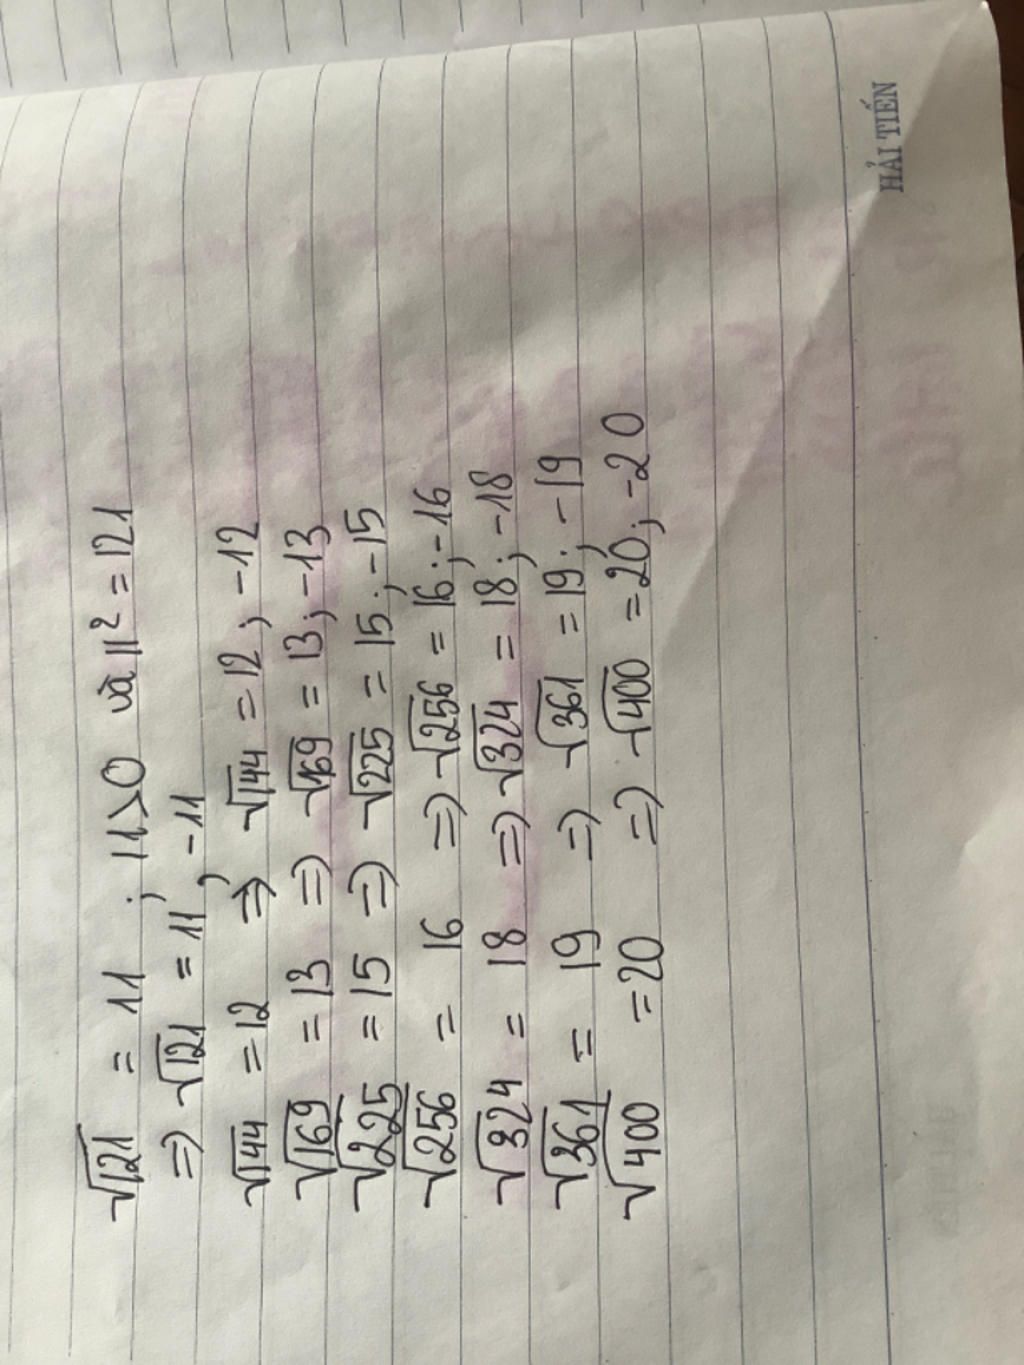 √121 = 11 ; 11>0 và 11² = 121
=> √121 = 11 ; -11
√144 = 12 => √144 = 12 ; -12
√169 = 13 => √169 = 13 ; -13
√225 = 15 => √225 = 15 ; -15
√256 = 16 => √256 = 16 ; -16
√324 = 18 => √324 = 18 ; -18
√361 = 19 => √361 = 19 ; -19
√400 = 20 => √400 = 20 ; -20
HẢI TIẾN